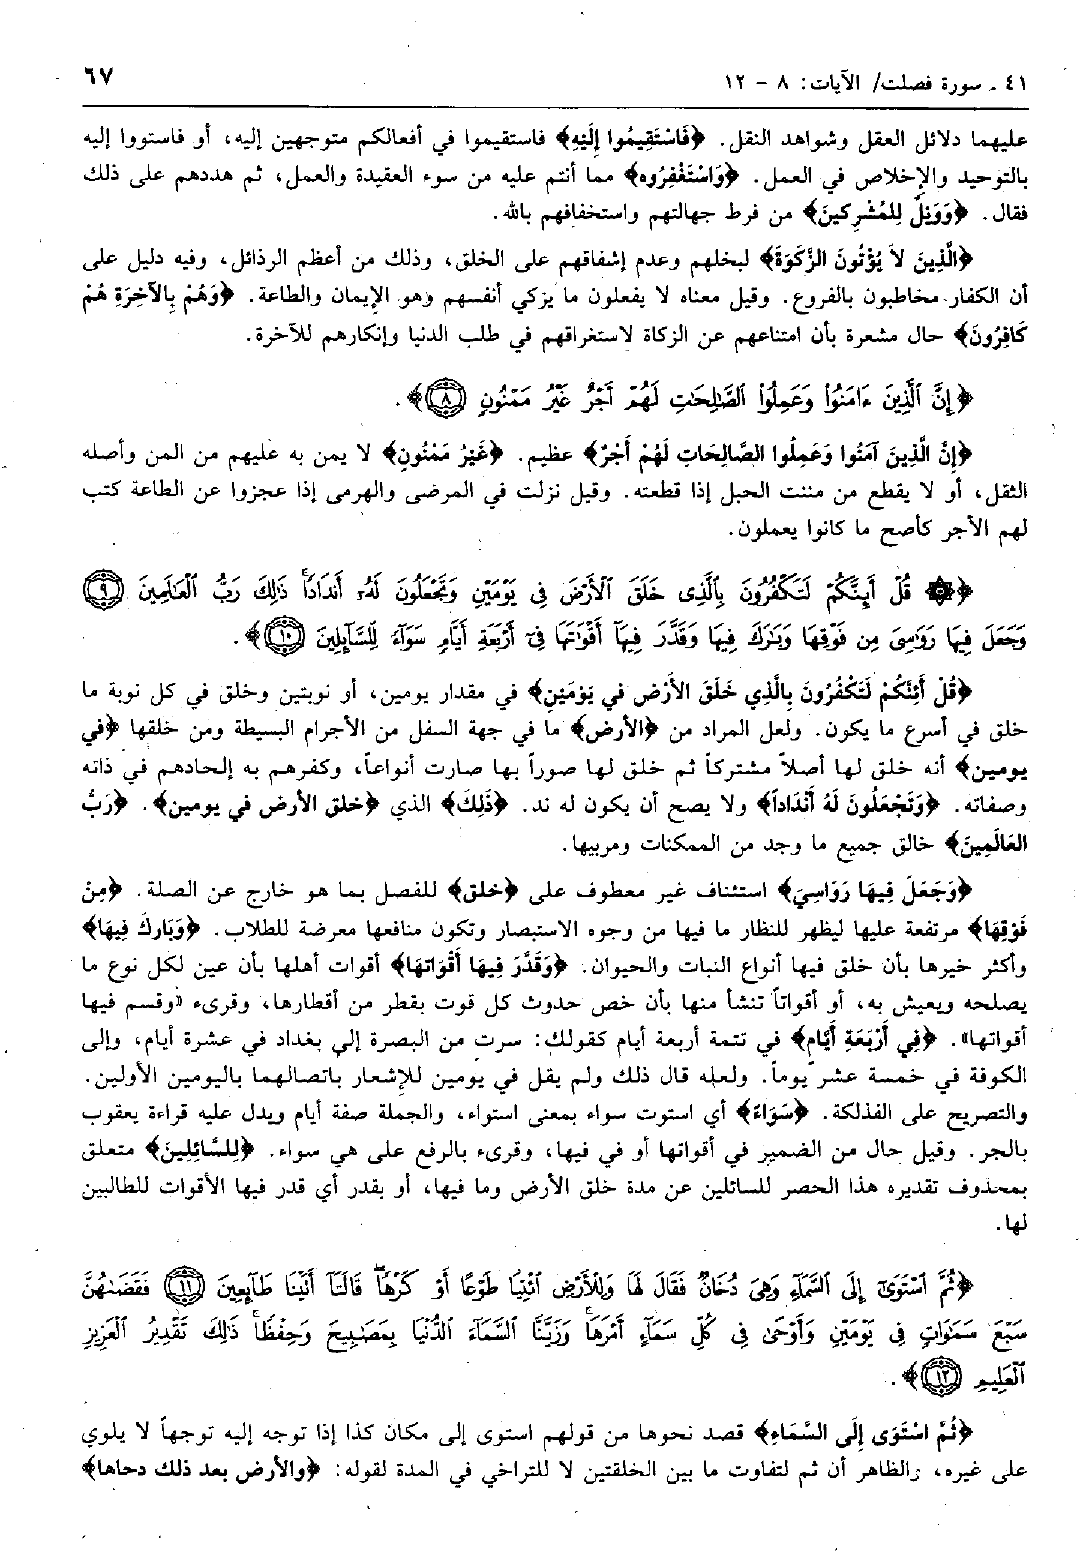 ٤١ ـ سورة فصلت/ الآيات: ٨ ـ ١٢
٦٧
عليهما دلائل العقل وشواهد النقل. ﴿فَاسْتَقِيمُوا إِلَيْهِ﴾ فاستقيموا في أفعالكم متوجهين إليه، أو فاستووا إليه
بالتوحيد والإخلاص في العمل. ﴿وَاسْتَغْفِرُوه﴾ مما أنتم عليه من سوء العقيدة والعمل، ثم هددهم على ذلك
فقال. ﴿وَوَيْلٌ لِلْمُشْرِكِينَ﴾ من فرط جهالتهم واستخفافهم بالله.
﴿الَّذِينَ لاَ يُؤْتُونَ الزَّكَوةَ﴾ لبخلهم وعدم إشفاقهم على الخلق، وذلك من أعظم الرذائل، وفيه دليل على
أن الكفار مخاطبون بالفروع. وقيل معناه لا يفعلون ما يزكي أنفسهم وهو الإيمان والطاعة. ﴿وَهُمْ بِالآخِرَةِ هُمْ
كَافِرُونَ﴾ حال مشعرة بأن امتناعهم عن الزكاة لاستغراقهم في طلب الدنيا وإنكارهم للآخرة.
﴿إِنَّ ٱلَّذِينَ ءَامَنُوا۟ وَعَمِلُوا۟ ٱلصَّـٰلِحَـٰتِ لَهُمْ أَجْرٌ غَيْرُ مَمْنُونٍ ﴿٨﴾﴾.
﴿إِنَّ الَّذِينَ آمَنُوا وَعَمِلُوا الصَّالِحَاتِ لَهُمْ أَجْرٌ﴾ عظيم. ﴿غَيْرُ مَمْنُونٍ﴾ لا يمن به عليهم من المن وأصله
الثقل، أو لا يقطع من مننت الحبل إذا قطعته. وقيل نزلت في المرضى والهرمى إذا عجزوا عن الطاعة كتب
لهم الأجر كأصح ما كانوا يعملون.
﴿۞ قُلْ أَئِنَّكُمْ لَتَكْفُرُونَ بِٱلَّذِى خَلَقَ ٱلْأَرْضَ فِى يَوْمَيْنِ وَتَجْعَلُونَ لَهُۥٓ أَندَادًا ۚ ذَٰلِكَ رَبُّ ٱلْعَـٰلَمِينَ ﴿٩﴾
وَجَعَلَ فِيهَا رَوَٰسِىَ مِن فَوْقِهَا وَبَـٰرَكَ فِيهَا وَقَدَّرَ فِيهَآ أَقْوَٰتَهَا فِىٓ أَرْبَعَةِ أَيَّامٍ سَوَآءً لِّلسَّآئِلِينَ ﴿١٠﴾﴾.
﴿قُلْ أَئِنَّكُمْ لَتَكْفُرُونَ بِالَّذِي خَلَقَ الأَرْضَ في يَوْمَيْنِ﴾ في مقدار يومين، أو نوبتين وخلق في كل نوبة ما
خلق في أسرع ما يكون. ولعل المراد من ﴿الأرض﴾ ما في جهة السفل من الأجرام البسيطة ومن خلقها ﴿في
يومين﴾ أنه خلق لها أصلاً مشتركاً ثم خلق لها صوراً بها صارت أنواعاً، وكفرهم به إلحادهم في ذاته
وصفاته. ﴿وَتَجْعَلُونَ لَهُ أَنْدَاداً﴾ ولا يصح أن يكون له ند. ﴿ذَلِكَ﴾ الذي ﴿خلق الأرض في يومين﴾. ﴿رَبُّ
العَالَمِينَ﴾ خالق جميع ما وجد من الممكنات ومربيها.
﴿وَجَعَلَ فِيهَا رَوَاسِيَ﴾ استئناف غير معطوف على ﴿خلق﴾ للفصل بما هو خارج عن الصلة. ﴿مِنْ
فَوْقِهَا﴾ مرتفعة عليها ليظهر للنظار ما فيها من وجوه الاستبصار وتكون منافعها معرضة للطلاب. ﴿وَبَارَكَ فِيهَا﴾
وأكثر خيرها بأن خلق فيها أنواع النبات والحيوان. ﴿وَقَدَّرَ فِيهَا أَقْوَاتَهَا﴾ أقوات أهلها بأن عين لكل نوع ما
يصلحه ويعيش به، أو أقواتاً تنشأ منها بأن خص حدوث كل قوت بقطر من أقطارها، وقرىء «وقسم فيها
أقواتها». ﴿فِي أَرْبَعَةِ أَيَّامٍ﴾ في تتمة أربعة أيام كقولك: سرت من البصرة إلى بغداد في عشرة أيام، وإلى
الكوفة في خمسة عشر يوماً. ولعله قال ذلك ولم يقل في يومين للإشعار باتصالهما باليومين الأولين.
والتصريح على الفذلكة. ﴿سَوَاءً﴾ أي استوت سواء بمعنى استواء، والجملة صفة أيام ويدل عليه قراءة يعقوب
بالجر. وقيل حال من الضمير في أقواتها أو في فيها، وقرىء بالرفع على هي سواء. ﴿لِلسَّائِلِينَ﴾ متعلق
بمحذوف تقديره هذا الحصر للسائلين عن مدة خلق الأرض وما فيها، أو بقدر أي قدر فيها الأقوات للطالبين
لها.
﴿ثُمَّ ٱسْتَوَىٰٓ إِلَى ٱلسَّمَآءِ وَهِىَ دُخَانٌ فَقَالَ لَهَا وَلِلْأَرْضِ ٱئْتِيَا طَوْعًا أَوْ كَرْهًا قَالَتَآ أَتَيْنَا طَآئِعِينَ ﴿١١﴾ فَقَضَىٰهُنَّ
سَبْعَ سَمَـٰوَاتٍ فِى يَوْمَيْنِ وَأَوْحَىٰ فِى كُلِّ سَمَآءٍ أَمْرَهَا ۚ وَزَيَّنَّا ٱلسَّمَآءَ ٱلدُّنْيَا بِمَصَـٰبِيحَ وَحِفْظًا ۚ ذَٰلِكَ تَقْدِيرُ ٱلْعَزِيزِ
ٱلْعَلِيمِ ﴿١٢﴾﴾.
﴿ثُمَّ اسْتَوَى إِلَى السَّمَاءِ﴾ قصد نحوها من قولهم استوى إلى مكان كذا إذا توجه إليه توجهاً لا يلوي
على غيره، والظاهر أن ثم لتفاوت ما بين الخلقتين لا للتراخي في المدة لقوله: ﴿والأرض بعد ذلك دحاها﴾